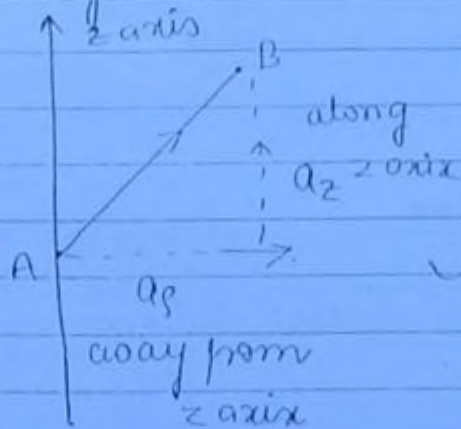 z axis
B
along
a_z z axix
A
a_ρ
away from
z axix